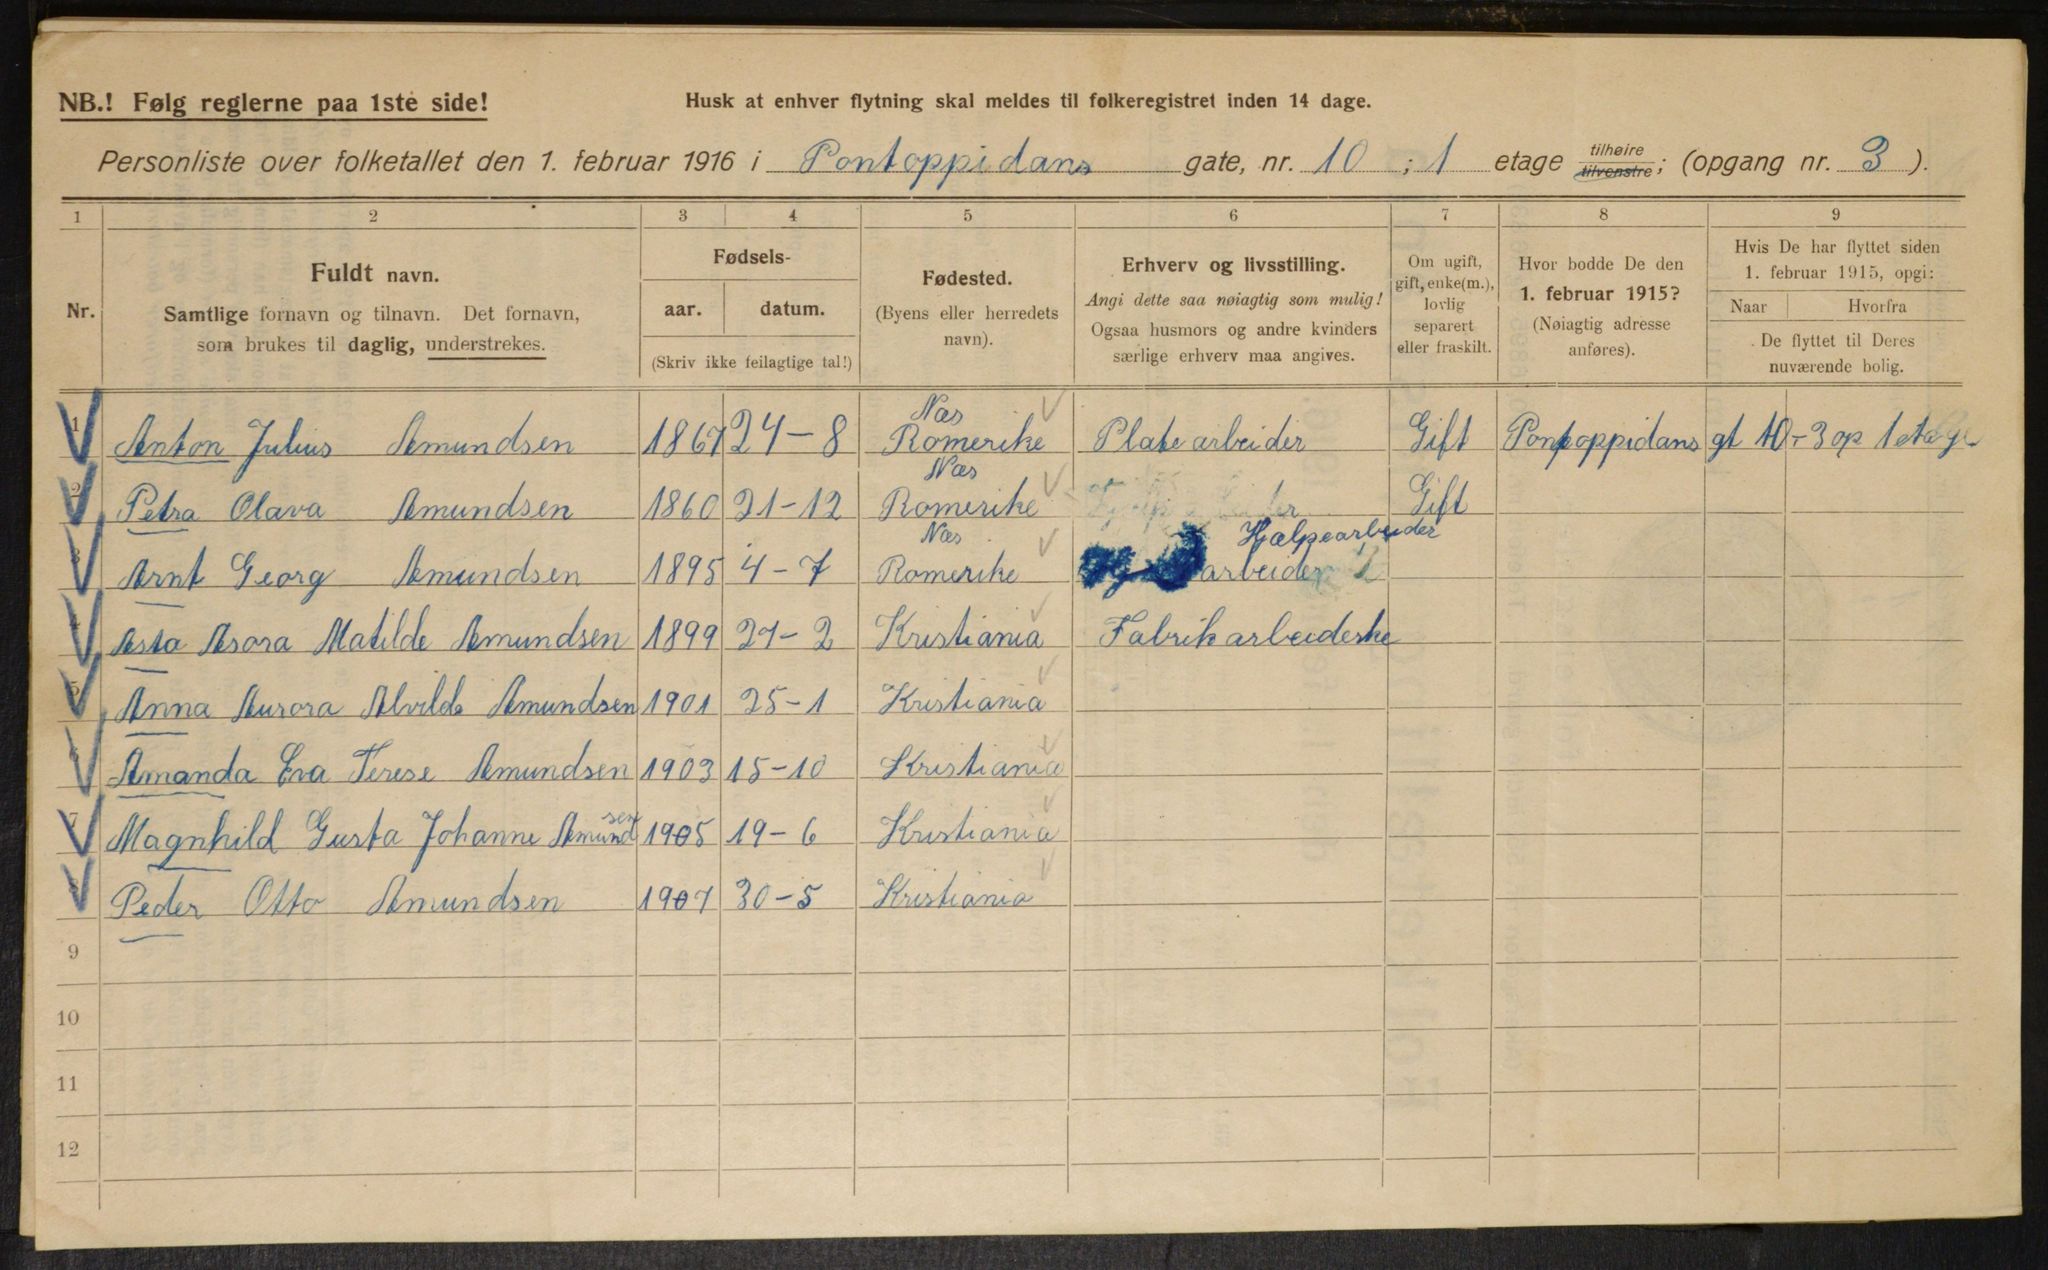 NB.! Følg reglerne paa 1ste side!
Husk at enhver flytning skal meldes til folkeregistret inden 14 dage.
Personliste over folketallet den 1. februar 1916 i Pontoppidans gate, nr. 10 ; 1 etage tilhøire tilvenstre; (opgang nr. 3 ).
1 2 3 4 5 6 7 8 9
Nr.
Fuldt navn.
Samtlige fornavn og tilnavn. Det fornavn,
som brukes til daglig, understrekes.
Fødsels-
aar. datum.
(Skriv ikke feilagtige tal!)
Fødested.
(Byens eller herredets
navn).
Erhverv og livsstilling.
Angi dette saa nøiagtig som mulig!
Ogsaa husmors og andre kvinders
særlige erhverv maa angives.
Om ugift,
gift, enke(m.),
lovlig
separert
eller fraskilt.
Hvor bodde De den
1. februar 1915?
(Nøiagtig adresse
anføres).
Hvis De har flyttet siden
1. februar 1915, opgi:
Naar Hvorfra
De flyttet til Deres
nuværende bolig.
1 Anton Julius Amundsen 1867 24-8 Næs Romerike Platearbeider Gift Pontoppidans gt 10-3 op 1 etage
2 Petra Olava Amundsen 1860 21-12 Næs Romerike Gift
3 Arnt Georg Amundsen 1895 4-7 Næs Romerike Hjælpearbeider arbeider
4 Asta Asora Matilde Amundsen 1899 27-2 Kristiania Fabrikarbeiderske
5 Anna Aurora Alvilde Amundsen 1901 25-1 Kristiania
6 Amanda Eva Terese Amundsen 1903 15-10 Kristiania
7 Magnhild Gusta Johanne Amundsen 1905 19-6 Kristiania
8 Peder Otto Amundsen 1907 30-5 Kristiania
9
10
11
12